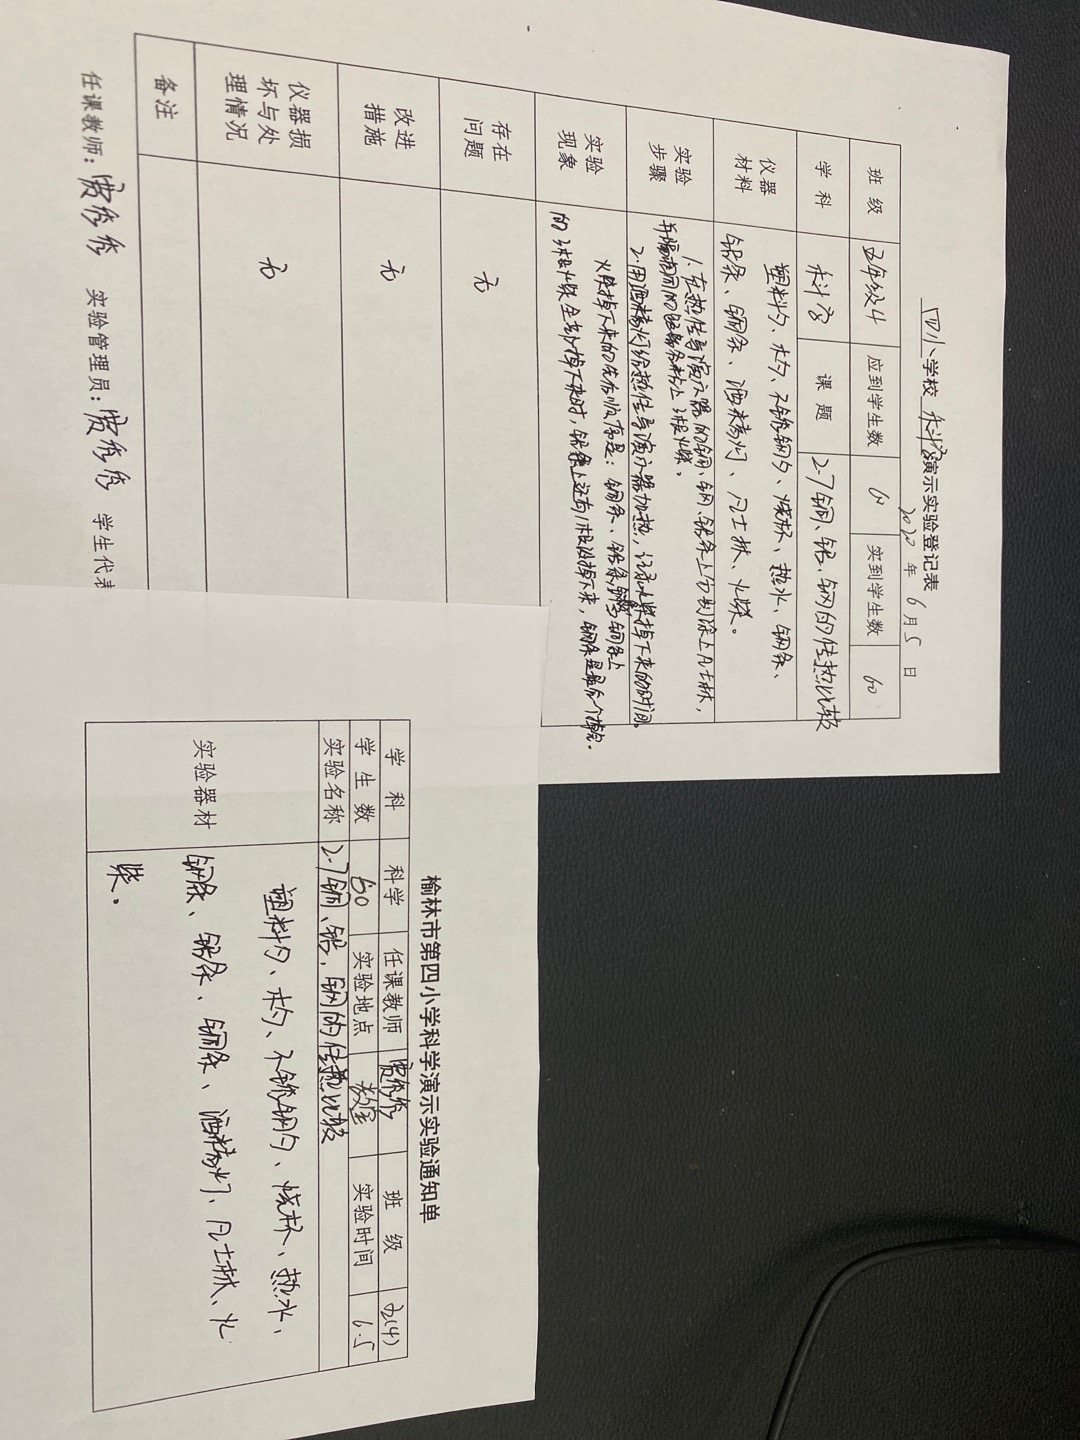 四小学校 科学演示实验登记表
2020年6月5日
班级 五年级4 应到学生数 60 实到学生数 60
学科 科学 课题 2.7铜、铝、钢的传热比较
仪器材料 塑料勺、木勺、不锈钢勺、烧杯、热水、钢条、
铝条、铜条、酒精灯、凡士林、火柴。
实验步骤 1.在热传导演示器的铜、钢、铝条上分别涂上凡士林,
并隔相同的距离各粘上3根火柴。
2.用酒精灯给热传导演示器加热,记录火柴掉下来的时间。
实验现象 火柴掉下来的先后顺序是:铜条、铝条、钢条 铜条上
的3根火柴全部掉下来时,铝条上还有1根没掉下来,钢条是最后个掉完。
存在问题 无
改进措施 无
仪器损坏与处理情况 无
备注
任课教师: 实验管理员: 学生代表
榆林市第四小学科学演示实验通知单
学科 科学 任课教师 班级 五(4)
学生数 60 实验地点 教室 实验时间 6.5
实验名称 2.7铜、铝、钢的传热比较
实验器材 塑料勺、木勺、不锈钢勺、烧杯、热水、
钢条、铝条、铜条、酒精灯、凡士林、火
柴。